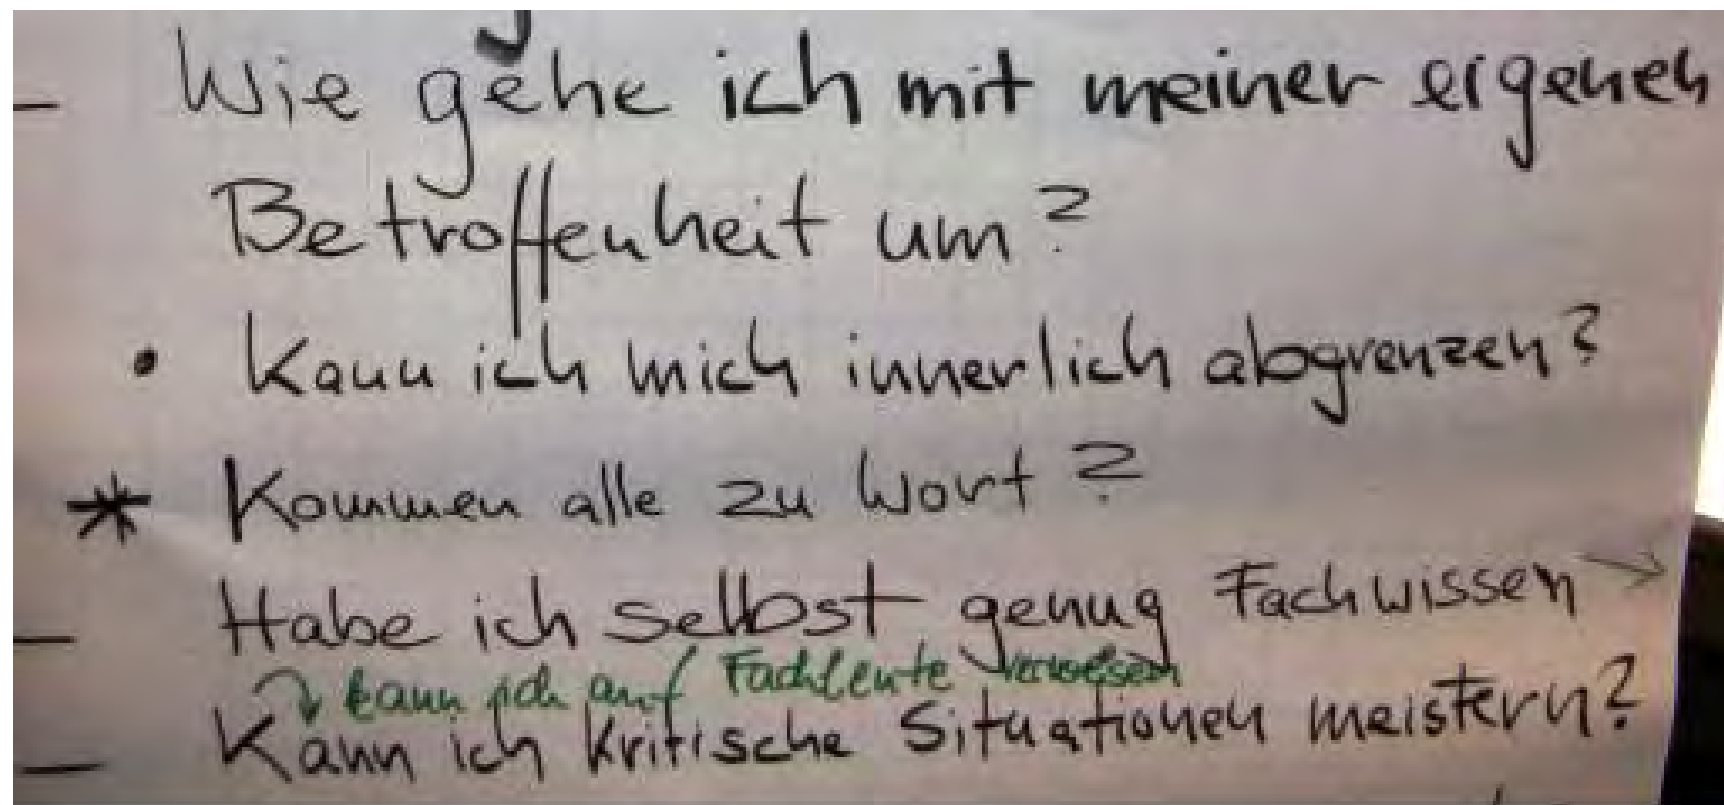 - Wie gehe ich mit meiner eigenen
Betroffenheit um?
• Kann ich mich innerlich abgrenzen?
* Kommen alle zu Wort?
- Habe ich selbst genug Fachwissen →
↳ kann ich auf Fachleute verweisen
- Kann ich kritische Situationen meistern?